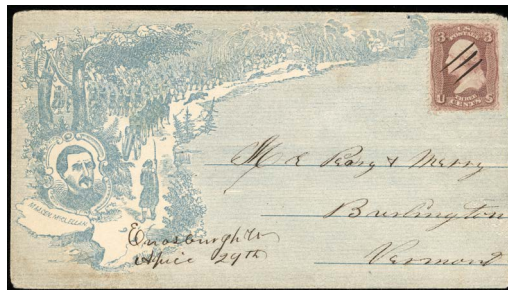 3 U.S. 3
POSTAGE
U THREE CENTS S
MAJ. GEN. McCLELLAN
Burlington
Vermont
Enosburgh Vt
April 29th